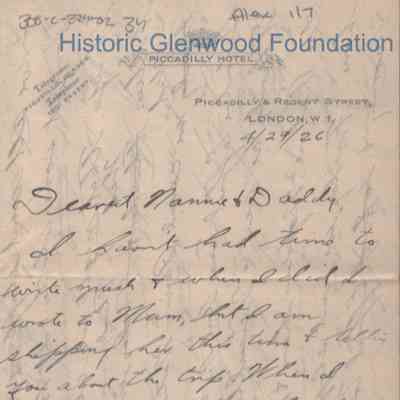 Alex 117
34
Historic Glenwood Foundation
PICCADILLY HOTEL.
PICCADILLY & REGENT STREET,
LONDON, W.1.
4/29/26
Dearest Nannie & Daddy,
I havn't had time to
write much & when I did I
wrote to Mam, but I am
skipping her this time &
you about the trip. When I